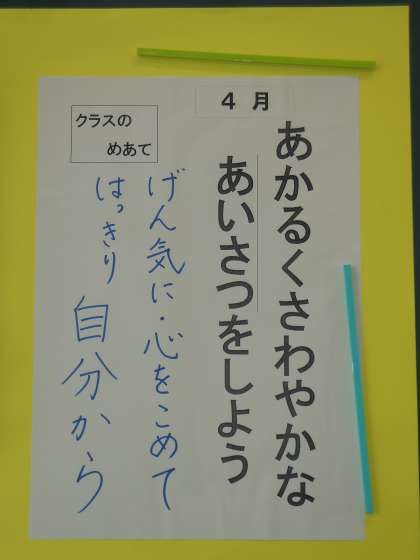 ４月
あかるくさわやかな
あいさつをしよう
クラスの
めあて
げん気に・心をこめて
はっきり 自分から